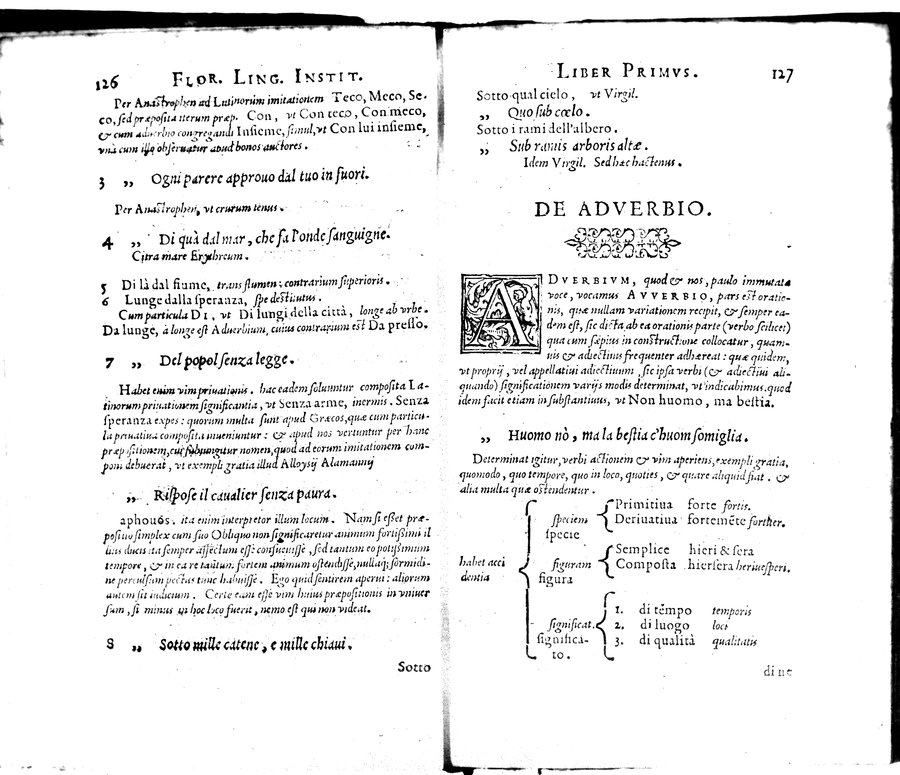 126 FLOR. LING. INSTIT.
Per Anastrophen ad Latinorum imitationem Teco, Meco, Se-
co, sed præposita iterum præp. Con, vt Con teco, Con meco,
& cum aduerbio congregandi Insieme, simul, vt Con lui insieme,
vnà cum illo obseruatur apud bonos auctores.
3 „ Ogni parere approuo dal tuo in fuori.
Per Anastrophen, vt crurum tenus.
4 „ Di quà dal mar, che fa l'onde sanguigne.
Citra mare Erythreum.
5 Di là dal fiume, trans flumen: contrarium superioris.
6 Lunge dalla speranza, spe destitutus.
Cum particula DI, vt Di lungi della città, longe ab vrbe.
Da lunge, à longe est Aduerbium, cuius contrarium est Da presso.
7 „ Del popol senza legge.
Habet enim vim priuationis. hac eadem soluuntur composita La-
tinorum priuationem significantia, vt Senza arme, inermis. Senza
speranza expes: quorum multa sunt apud Græcos, quæ cum particu-
la priuatiua composita inueniuntur: & apud nos vertuntur per hanc
præpositionem, cui subiungitur nomen, quod ad eorum imitationem com-
poni debuerat, vt exempli gratia illud Alloysij Alamannij
„ Rispose il caualier senza paura.
aphouós. ita enim interpretor illum locum. Nam si esset præ-
positio simplex cum suo Obliquo non significaretur animum fortissimi il
lius ducis ita semper affectum esse consueuisse, sed tantum eo potissimum
tempore, & in ea re tantum fortem animum ostendisse, nullaq; formidi-
ne perculsum pectus tunc habuisse. Ego quid sentirem aperui: aliorum
autem sit iudicium. Certe eam esse vim huius præpositionis in vniuer
sum, si minus in hoc loco fuerit, nemo est qui non videat.
8 „ Sotto mille catene, e mille chiaui.
Sotto
LIBER PRIMVS. 127
Sotto qual cielo, vt Virgil.
„ Quo sub cœlo.
Sotto i rami dell'albero.
„ Sub ramis arboris altæ.
Idem Virgil. Sed hæc hactenus.
DE ADVERBIO.
ADVERBIVM, quod & nos, paulo immutata
voce, vocamus AVVERBIO, pars est oratio-
nis, quæ nullam variationem recipit, & semper ea-
dem est, sic dicta, ab ea orationis parte (verbo scilicet)
qua cum sæpius in constructione collocatur, quam-
uis & adiectiuis frequenter adhæreat: quæ quidem,
vt proprij, vel appellatiui adiectium, sic ipsa verbi (& adiectiui ali-
quando) significationem varijs modis determinat, vt indicabimus. quod
idem facit etiam in substantiuis, vt Non huomo, ma bestia.
„ Huomo nò, ma la bestia c'huom somiglia.
Determinat igitur, verbi actionem & vim aperiens, exempli gratia,
quomodo, quo tempore, quo in loco, quoties, & quare aliquid fiat. &
alia multa quæ ostendentur.
habet acci
dentia
speciem
specie
Primitiua forte fortis.
Deriuatiua fortemẽte fortiter.
figuram
figura
Semplice hieri & sera
Composta hiersera heri vesperi.
significat.
significa-
to.
1. di tẽmpo temporis
2. di luogo loci
3. di qualità qualitatis
di ne